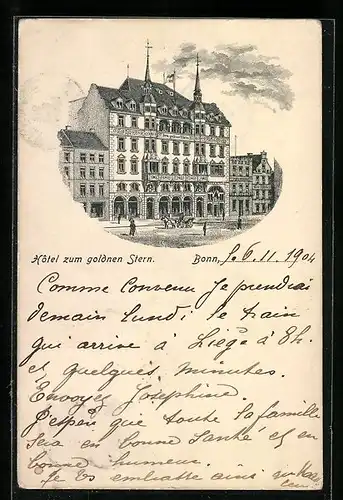 Hôtel zum goldnen Stern. Bonn, S. 6. 11. 1904
Comme Convenu Je prendrai
demain lundi le train
qui arrive à Liège à 8h.
et quelques minutes.
Envoyez Joséphine.
J'espère que toute la famille
sera en bonne santé et en
bonne humeur.
Je vs embrasse ainsi